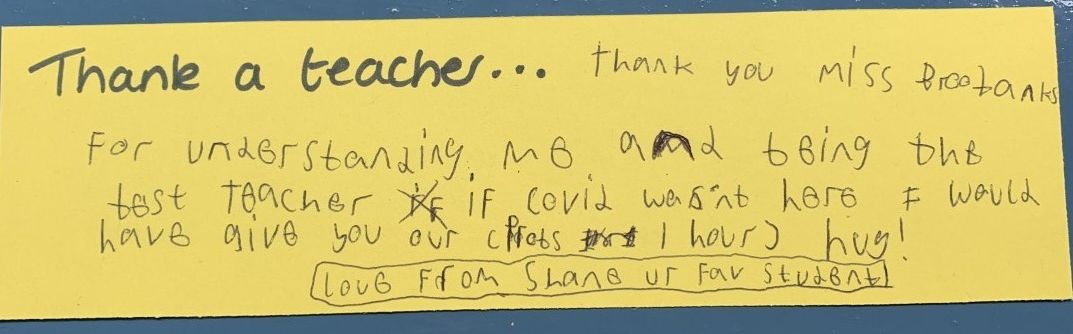 Thank a teacher... thank you miss Brootanks
For understanding me and being the
best Teacher if covid wasn't here I would
have give you our (1 hour) hug!
love From Shane ur Fav student